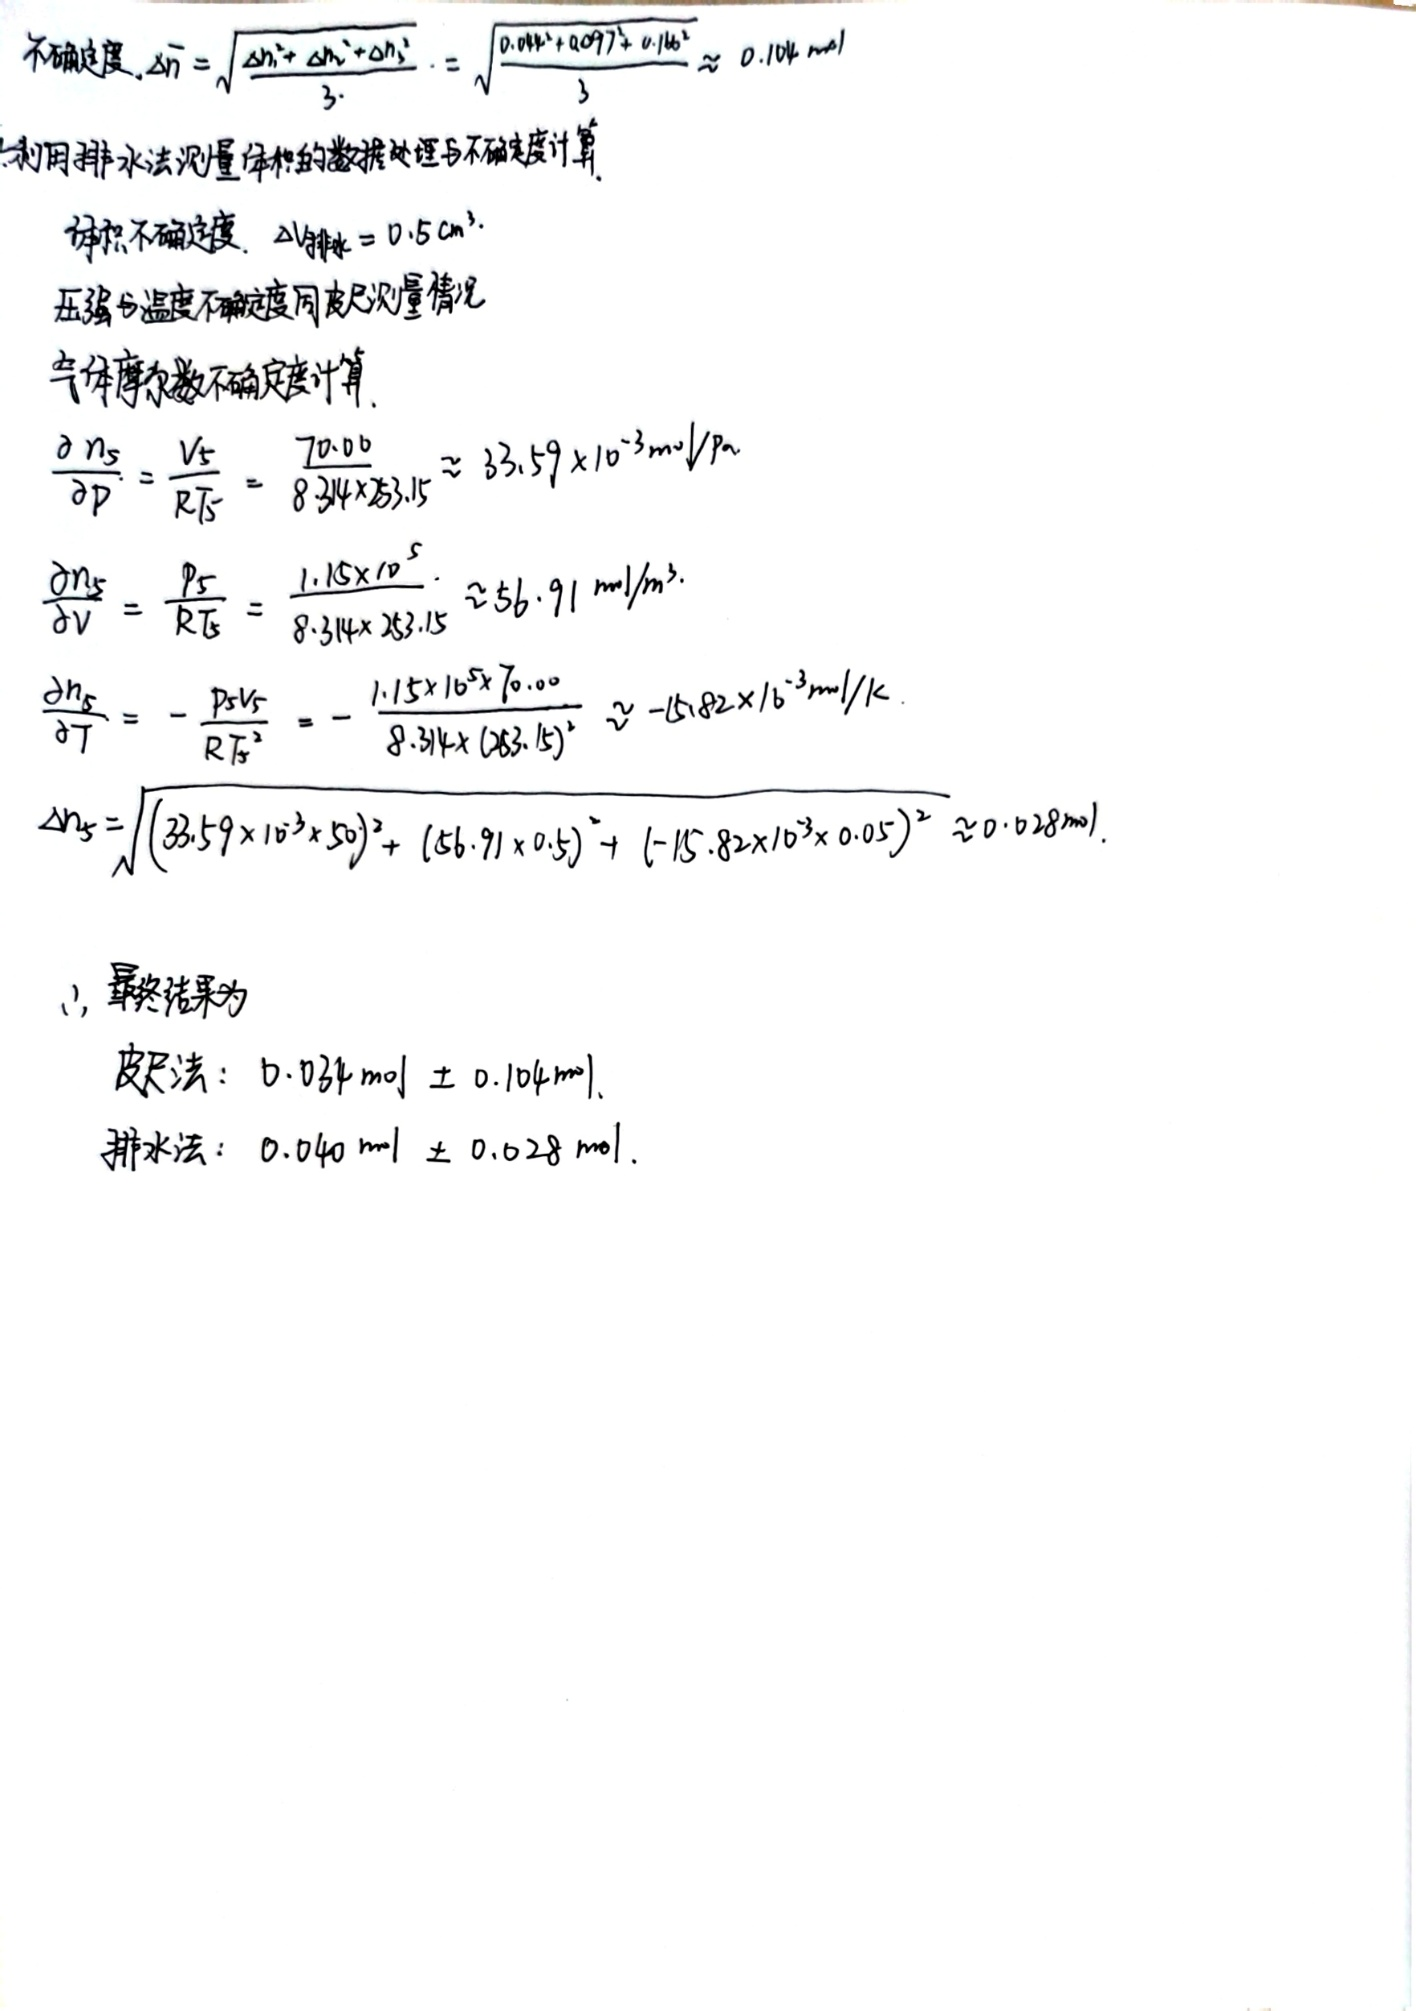 不确定度. Δn̄ = √((Δn₁²+Δn₂²+Δn₃²)/3) = √((0.044²+0.097²+0.166²)/3) ≈ 0.104 mol
利用排水法测量体积的数据处理与不确定度计算.
体积不确定度. ΔV排水 = 0.5cm³.
压强与温度不确定度同皮尺测量情况
气体摩尔数不确定度计算.
∂n₅/∂P = V₅/RT₅ = 70.00/(8.314×253.15) ≈ 33.59×10⁻³mol/Pa
∂n₅/∂V = P₅/RT₅ = 1.15×10⁵/(8.314×253.15) ≈ 56.91 mol/m³.
∂n₅/∂T = - P₅V₅/RT₅² = - 1.15×10⁵×70.00/(8.314×(253.15)²) ≈ -15.82×10⁻³mol/K.
Δn₅ = √((33.59×10⁻³×50)²+(56.91×0.5)²+(-15.82×10⁻³×0.05)²) ≈ 0.028mol.
∴ 最终结果为
皮尺法: 0.034mol ± 0.104mol.
排水法: 0.040 mol ± 0.028 mol.